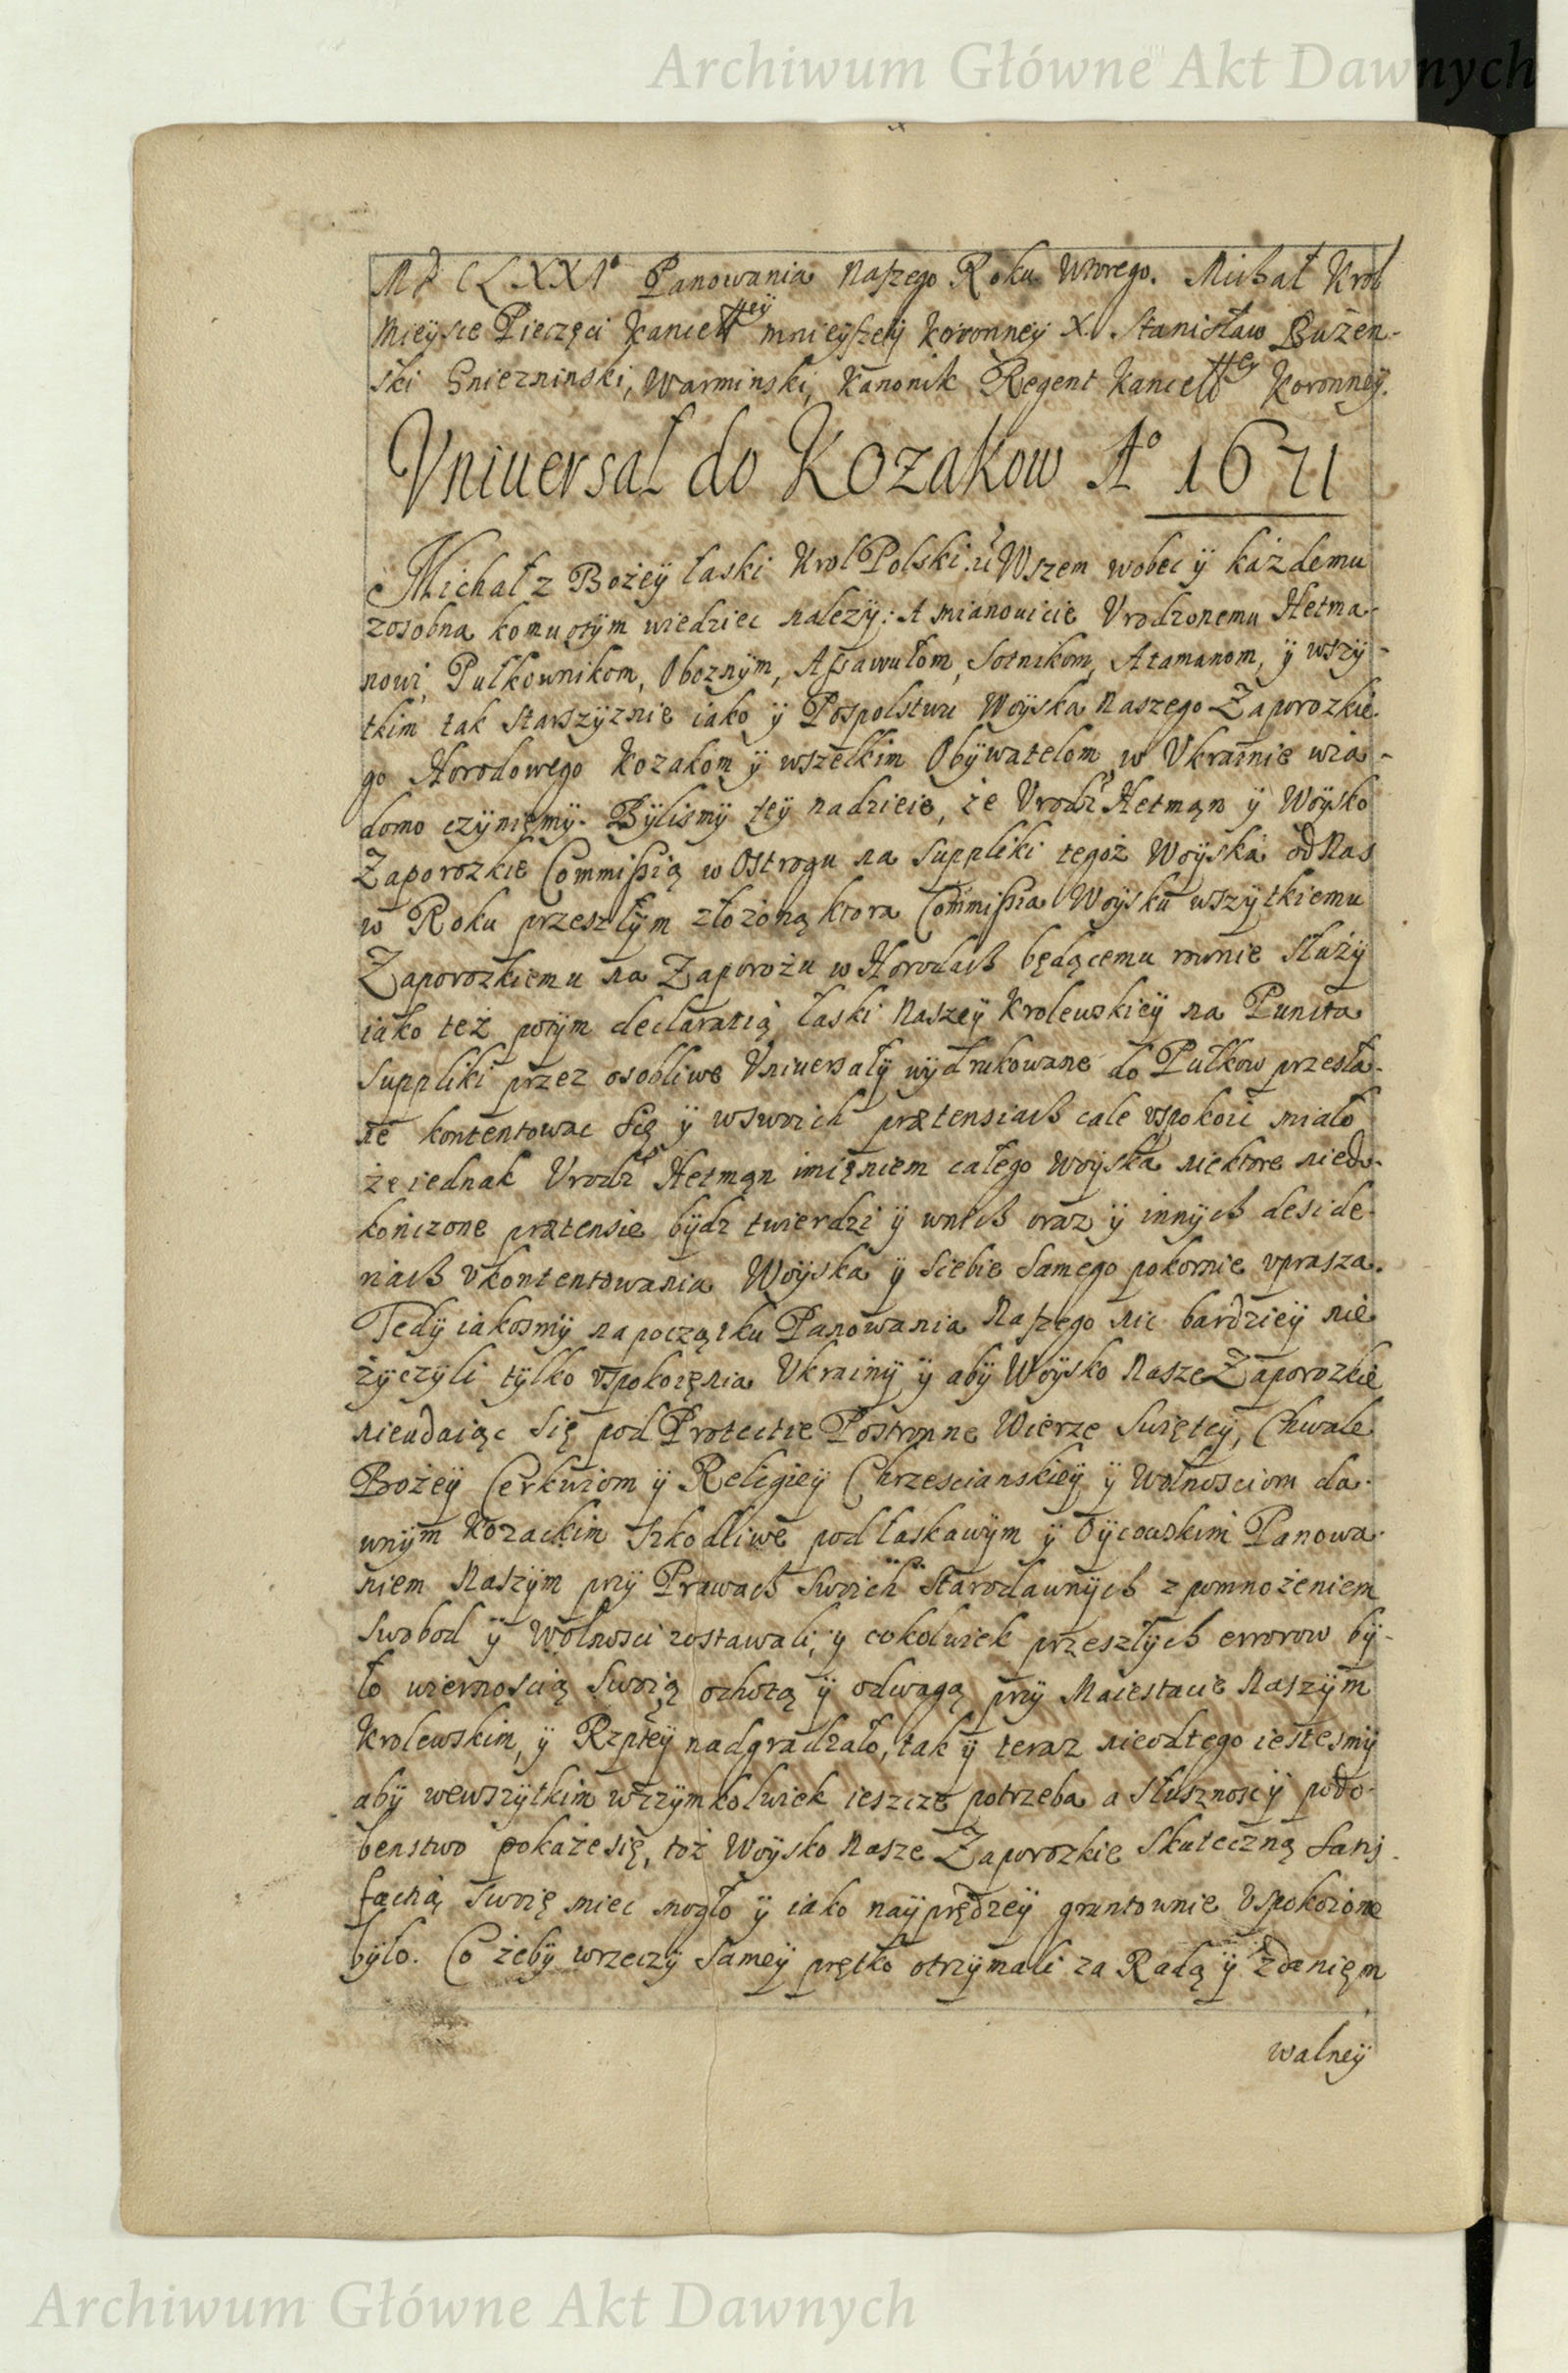 Archiwum Główne Akt Dawnych
MDCLXXIº Panowania Naszego Roku Wtorego. Michał Krol
Mieysce Pieczęci Kancellÿeÿ mnieyszeÿ Koronneÿ X. Stanisław Bużen-
ski Gniezninski, Warminski, Kanonik Regent Kancellÿeÿ Koronneÿ.
Vniuersał do Kozakow Aº 1671
Michał z Bożeÿ łaski Krol Polski. Wszem wobec ÿ każdemu
zosobna komu otÿm wiedziec nalezÿ: A mianouicie Vrodzonemu Hetma-
nowi, Pułkownikom, Oboznÿm, Assawułom, Sotnikom, Atamanom, ÿ wszÿ-
tkim tak Starszÿznie iako ÿ Pospolstwu Woÿska Naszego Zaporozkie-
go Horodowego Kozakom ÿ wszelkim Obÿwatelom w Vkrainie wia-
domo czÿnięmÿ. Bÿlismÿ teÿ nadzieie, że Vrodz. Hetmąn ÿ Woÿsko
Zaporozkie Commissią w Ostrogu na Suppliki tegoż Woÿska od Nas
w Roku przeszłÿm złożoną ktora Commissia Woÿsku wszÿtkiemu
Zaporozkiemu na Zaporożu w Horodach będącemu rownie służÿ
iako też potÿm declaratią łaski Naszeÿ Krolewskieÿ na Puncta
Suppliki przez osobliwe Vniuersałÿ wÿdrukowane do Pułkow przesła-
ne kontentowac się ÿ w swoich prætensiach cale vspokoic miało
żę iednak Vrodz. Hetmąn imięniem całego Woÿska niektore niedo-
kończone prætensie bÿdz twierdzi ÿ wnich oraz ÿ innÿch deside-
riach vkontentowania Woÿska ÿ siebie samego pokornie vprasza.
Tedÿ iakosmÿ napoczątku Panowania Naszego nic bardzieÿ nie
żÿczÿli tÿlko vspokoięnia Vkrainÿ ÿ abÿ Woÿsko Nasze Zaporozkie
nieudaiąc się pod Protectie Postronne Wierze Swięteÿ, Chwale
Bożeÿ Cerkwiom ÿ Religieÿ Chrzescianskieÿ ÿ Wolnosciom da-
wnÿm Kozackim szkodliwe pod łaskawÿm ÿ Oÿcowskim Panowa-
niem Naszÿm przÿ Prawach Swoich Starodawnÿch z pomnożeniem
Swobod ÿ Wolnosci zostawali, ÿ cokolwiek przeszłÿch errorow bÿ-
ło wiernoscią Swoią ochotą ÿ odwagą przÿ Maiestacie Naszÿm
Krolewskim, ÿ Rzpteÿ nadgradzało, tak ÿ teraz nieodtego iestesmÿ
abÿ wewszÿtkim wczÿmkolwiek ieszcze potrzeba a słusznoscÿ podo-
benstwo pokaże się, toż Woÿsko Nasze Zaporozkie skuteczną satis-
factią swoię miec mogło ÿ iako naÿprędzeÿ gruntownie vspokoione
bÿło. Co żebÿ wrzeczÿ sameÿ prętko otrzÿmali za Radą ÿ zdanięm
walneÿ
Archiwum Główne Akt Dawnych